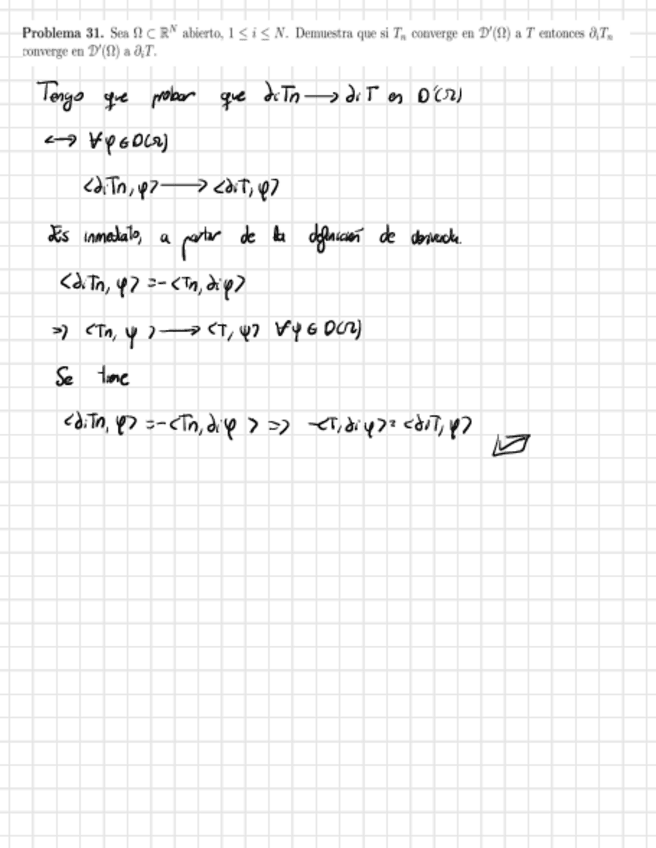 Problema 31. Sea Ω ⊂ ℝᴺ abierto, 1 ≤ i ≤ N. Demuestra que si Tₙ converge en 𝒟′(Ω) a T entonces ∂ᵢTₙ
converge en 𝒟′(Ω) a ∂ᵢT.
Tengo que probar que ∂iTn → ∂iT en D'(Ω)
<-> ∀φ∈D(Ω)
<∂iTn, φ> → <∂iT, φ>
Es inmediato, a partir de la definición de derivada.
<∂iTn, φ> = -<Tn, ∂iφ>
=> <Tn, ψ> → <T, ψ> ∀ψ∈D(Ω)
Se tiene
<∂iTn, φ> = -<Tn, ∂iφ> => -<T, ∂iφ> = <∂iT, φ>